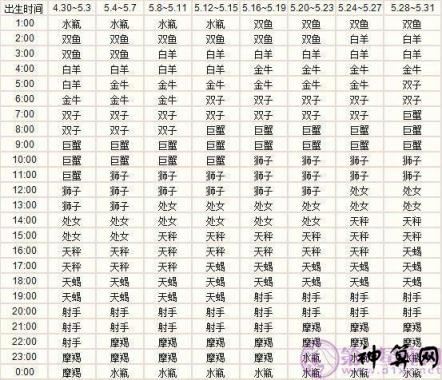 出生时间 4.30~5.3 5.4~5.7 5.8~5.11 5.12~5.15 5.16~5.19 5.20~5.23 5.24~5.27 5.28~5.31
1:00 水瓶 水瓶 水瓶 水瓶 双鱼 双鱼 双鱼 双鱼
2:00 双鱼 双鱼 双鱼 双鱼 双鱼 双鱼 白羊 白羊
3:00 双鱼 双鱼 白羊 白羊 白羊 白羊 白羊 白羊
4:00 白羊 白羊 白羊 白羊 金牛 金牛 金牛 金牛
5:00 白羊 金牛 金牛 金牛 金牛 金牛 金牛 双子
6:00 金牛 金牛 金牛 双子 双子 双子 双子 双子
7:00 双子 双子 双子 双子 双子 双子 双子 巨蟹
8:00 双子 双子 双子 巨蟹 巨蟹 巨蟹 巨蟹 巨蟹
9:00 巨蟹 巨蟹 巨蟹 巨蟹 巨蟹 巨蟹 巨蟹 巨蟹
10:00 巨蟹 巨蟹 巨蟹 巨蟹 狮子 狮子 狮子 狮子
11:00 巨蟹 狮子 狮子 狮子 狮子 狮子 狮子 狮子
12:00 狮子 狮子 狮子 狮子 狮子 狮子 处女 处女
13:00 狮子 狮子 处女 处女 处女 处女 处女 处女
14:00 处女 处女 处女 处女 处女 处女 天秤 天秤
15:00 处女 处女 天秤 天秤 天秤 天秤 天秤 天秤
16:00 天秤 天秤 天秤 天秤 天蝎 天蝎 天蝎 天蝎
17:00 天秤 天蝎 天蝎 天蝎 天蝎 天蝎 天蝎 天蝎
18:00 天蝎 天蝎 天蝎 天蝎 天蝎 天蝎 天蝎 天蝎
19:00 天蝎 天蝎 天蝎 天蝎 射手 射手 射手 射手
20:00 射手 射手 射手 射手 射手 射手 射手 射手
21:00 射手 射手 射手 射手 射手 摩羯 摩羯
22:00 射手 摩羯 摩羯 摩羯 摩羯 摩羯
23:00 摩羯 摩羯 摩羯 摩羯 摩羯 水瓶
0:00 摩羯 水瓶 水瓶 水瓶 水瓶 水瓶 水瓶 水瓶
神算网